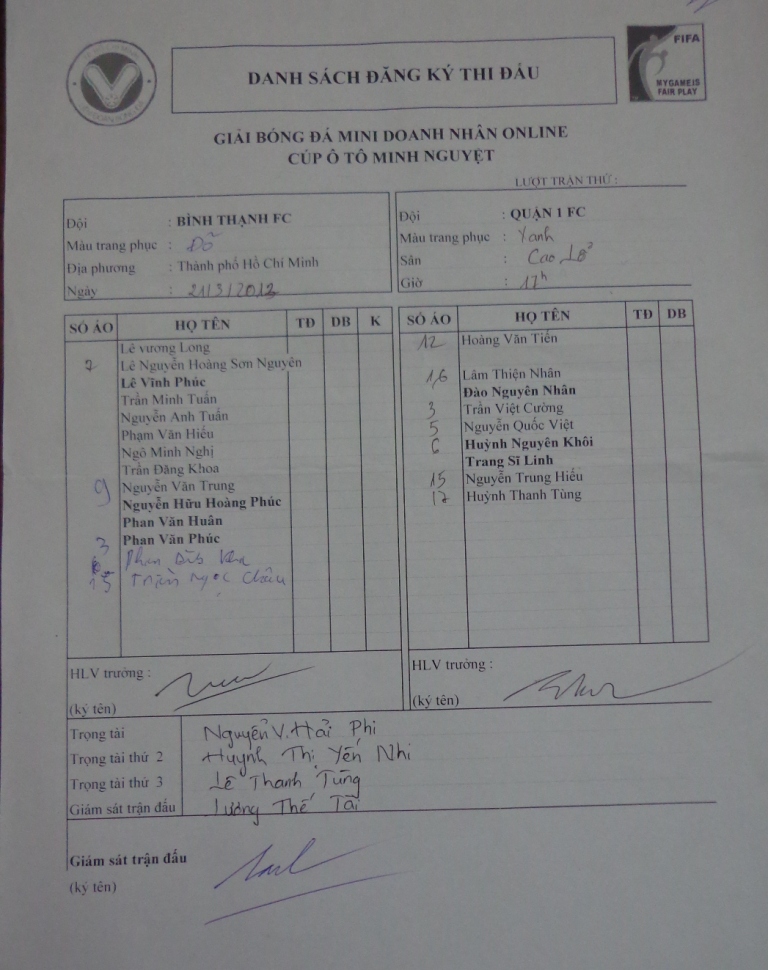 DANH SÁCH ĐĂNG KÝ THI ĐẤU
FIFA
MYGAMEIS
FAIR PLAY
GIẢI BÓNG ĐÁ MINI DOANH NHÂN ONLINE
CÚP Ô TÔ MINH NGUYỆT
LƯỢT TRẬN THỨ :
Đội : BÌNH THẠNH FC
Màu trang phục : Đỏ
Địa phương : Thành phố Hồ Chí Minh
Ngày : 21/3/2012
Đội : QUẬN 1 FC
Màu trang phục : Xanh
Sân : Cao Lỗ
Giờ : 17h
SỐ ÁO HỌ TÊN TĐ DB K
Lê vương Long
7 Lê Nguyễn Hoàng Sơn Nguyên
Lê Vĩnh Phúc
Trần Minh Tuấn
Nguyễn Anh Tuấn
Phạm Văn Hiếu
Ngô Minh Nghị
Trần Đăng Khoa
9 Nguyễn Văn Trung
Nguyễn Hữu Hoàng Phúc
Phan Văn Huân
3 Phan Văn Phúc
Phan
15 Trần Ngọc Châu
SỐ ÁO HỌ TÊN TĐ DB
12 Hoàng Văn Tiến
16 Lâm Thiện Nhân
Đào Nguyên Nhân
3 Trần Việt Cường
5 Nguyễn Quốc Việt
6 Huỳnh Nguyên Khôi
Trang Sĩ Linh
15 Nguyễn Trung Hiếu
17 Huỳnh Thanh Tùng
HLV trưởng :
(ký tên)
HLV trưởng :
(ký tên)
Trọng tài Nguyễn V. Hải Phi
Trọng tài thứ 2 Huỳnh Thị Yến Nhi
Trọng tài thứ 3 Lê Thanh Tùng
Giám sát trận đấu Lương Thế Tài
Giám sát trận đấu
(ký tên)